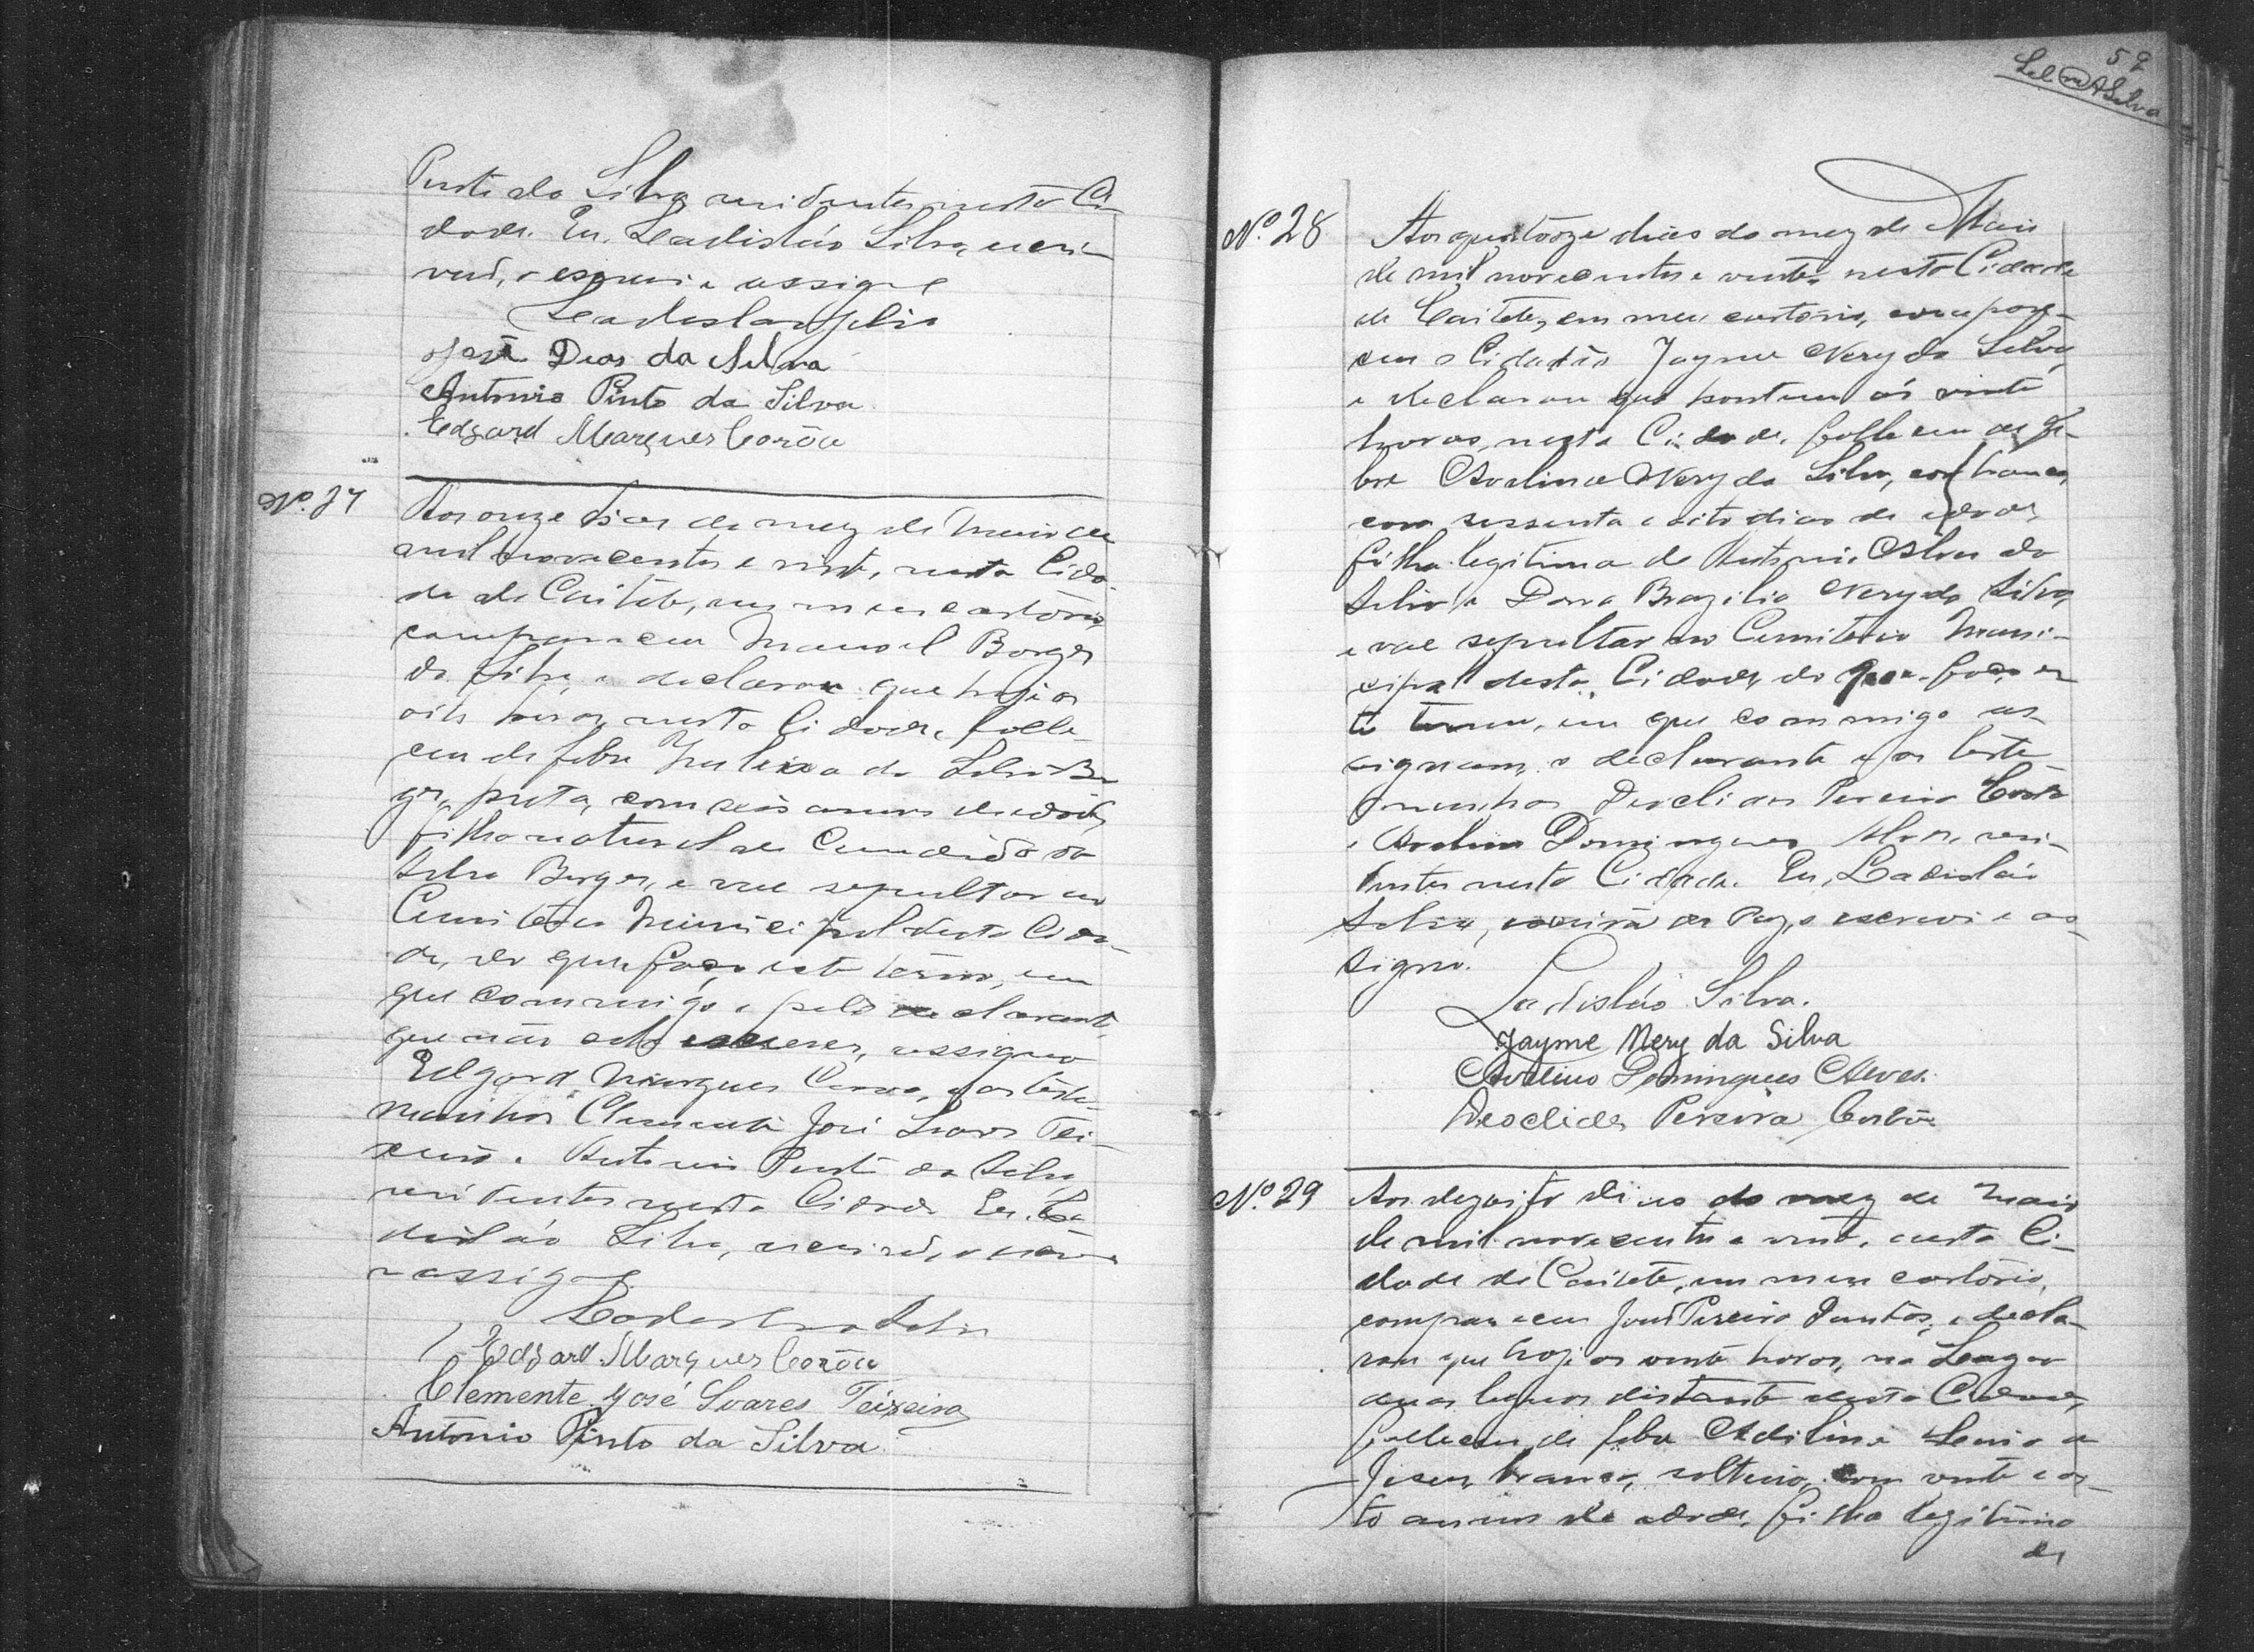 Pinto da Silva residentes nesta Ci-
dade. Eu, Ladisláo Silva, escri-
vão, o escrevi e assigno
Ladisláo Silva
José Dias da Silva
Antonio Pinto da Silva
Edgard Marques Corôa
Nº. 27
Aos onze dias do mez de Maio de
mil novecentos e vinte, nesta Cida-
de de Caiteté, em meu cartório,
compareceu Manoel Borges
da Silva, e declarou que hoje as
oito horas, nesta Cidade, falle-
ceu de febre da Silva Bor-
ges, preta, com seis annos de idade,
filha natural de Candida da
Silva Borges, e vae sepultar no
Cemiterio Municipal desta Cida-
de, do que faço este termo, em
que commigo e pelo declarante,
que não sabe escrever, assigna
Edgard Marques Coroa, e as teste-
munhas Clemente José Soares Tei-
xeira e Antonio Pinto da Silva,
residentes nesta Cidade. Eu, La-
disláo Silva, escrivão, o escrevi
e assigno.
Ladisláo Silva
Edgard Marques Corôa
Clemente José Soares Teixeira
Antonio Pinto da Silva
59
Silva
Nº. 28
Aos quatorze dias do mez de Maio
de mil novecentos e vinte, nesta Cidade
de Caiteté, em meu cartorio, compare-
ceu o Cidadão Jayme Nery da Silva,
e declarou que hontem ás vinte
horas, nesta Cidade, falleceu de fe-
bre Avelina Nery da Silva, côr branca,
com sessenta e oito dias de idade,
filha legitima de Antonio Alves da
Silva e Dona Brazilia Nery da Silva,
e vae sepultar no Cemiterio Muni-
cipal desta Cidade, do que faço es-
te termo, em que commigo as-
signam, o declarante e as teste-
munhas Deoclides Pereira Costa
e Avelino Domingues Alves, resi-
dentes nesta Cidade. Eu, Ladisláo
Silva, escrivão de Paz, o escrevi e as-
signo.
Ladisláo Silva.
Jayme Nery da Silva
Avelino Domingues Alves.
Deoclides Pereira Costa
Nº. 29
Aos dezoito dias do mez de Maio
de mil novecentos e vinte, nesta Ci-
dade de Caiteté, em meu cartório,
compareceu José Pereira Dantas, e decla-
rou que hoje as vinte horas, na
duas leguas distante desta Cidade,
falleceu de febre Adelina de
Jesus, branca, solteira, com vinte e oi-
to annos de idade, filha legitima
de